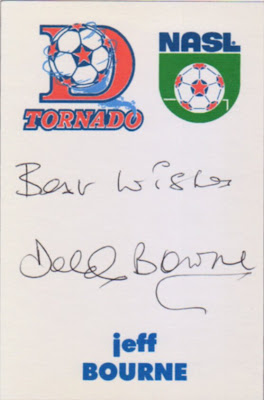 D
TORNADO
NASL
Best Wishes
Bourne
jeff
BOURNE